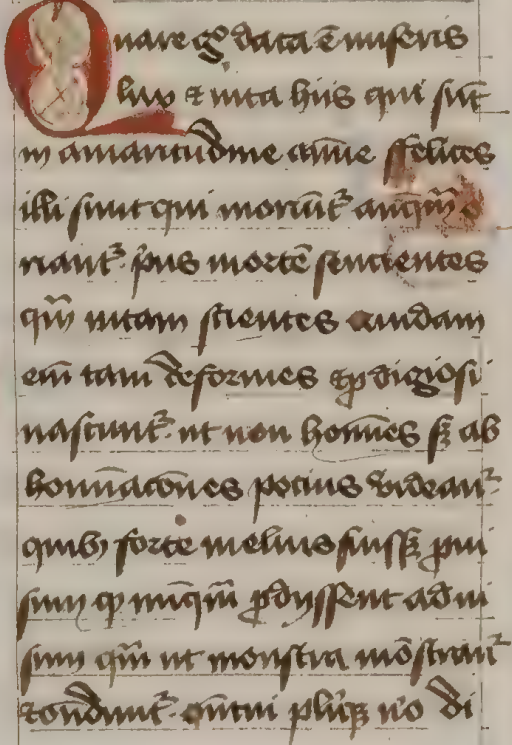 Quare gͦ data ē miseris
lux & uita hiis qui sūt
in amaritudīne aīme ffelices
illi sunt qui moriūtᷣ anq̄m o
riantᷣ pͥus mortē sencientes
qm̄ uitam scientes Quidam
eīm tam deformes & ꝓdigiosi
nascuntᷣ ut non homīes sꝫ ab
homīacōnes pocius videanᷣ
quibꝫ forte melius fuissꝫ ꝓui
sum qꝫ nūq̄m ꝓdijssent ad ui
sum qm̄ ut monstra mōstrantᷣ
& ondūntᷣ qūtui pluīqꝫ nō di